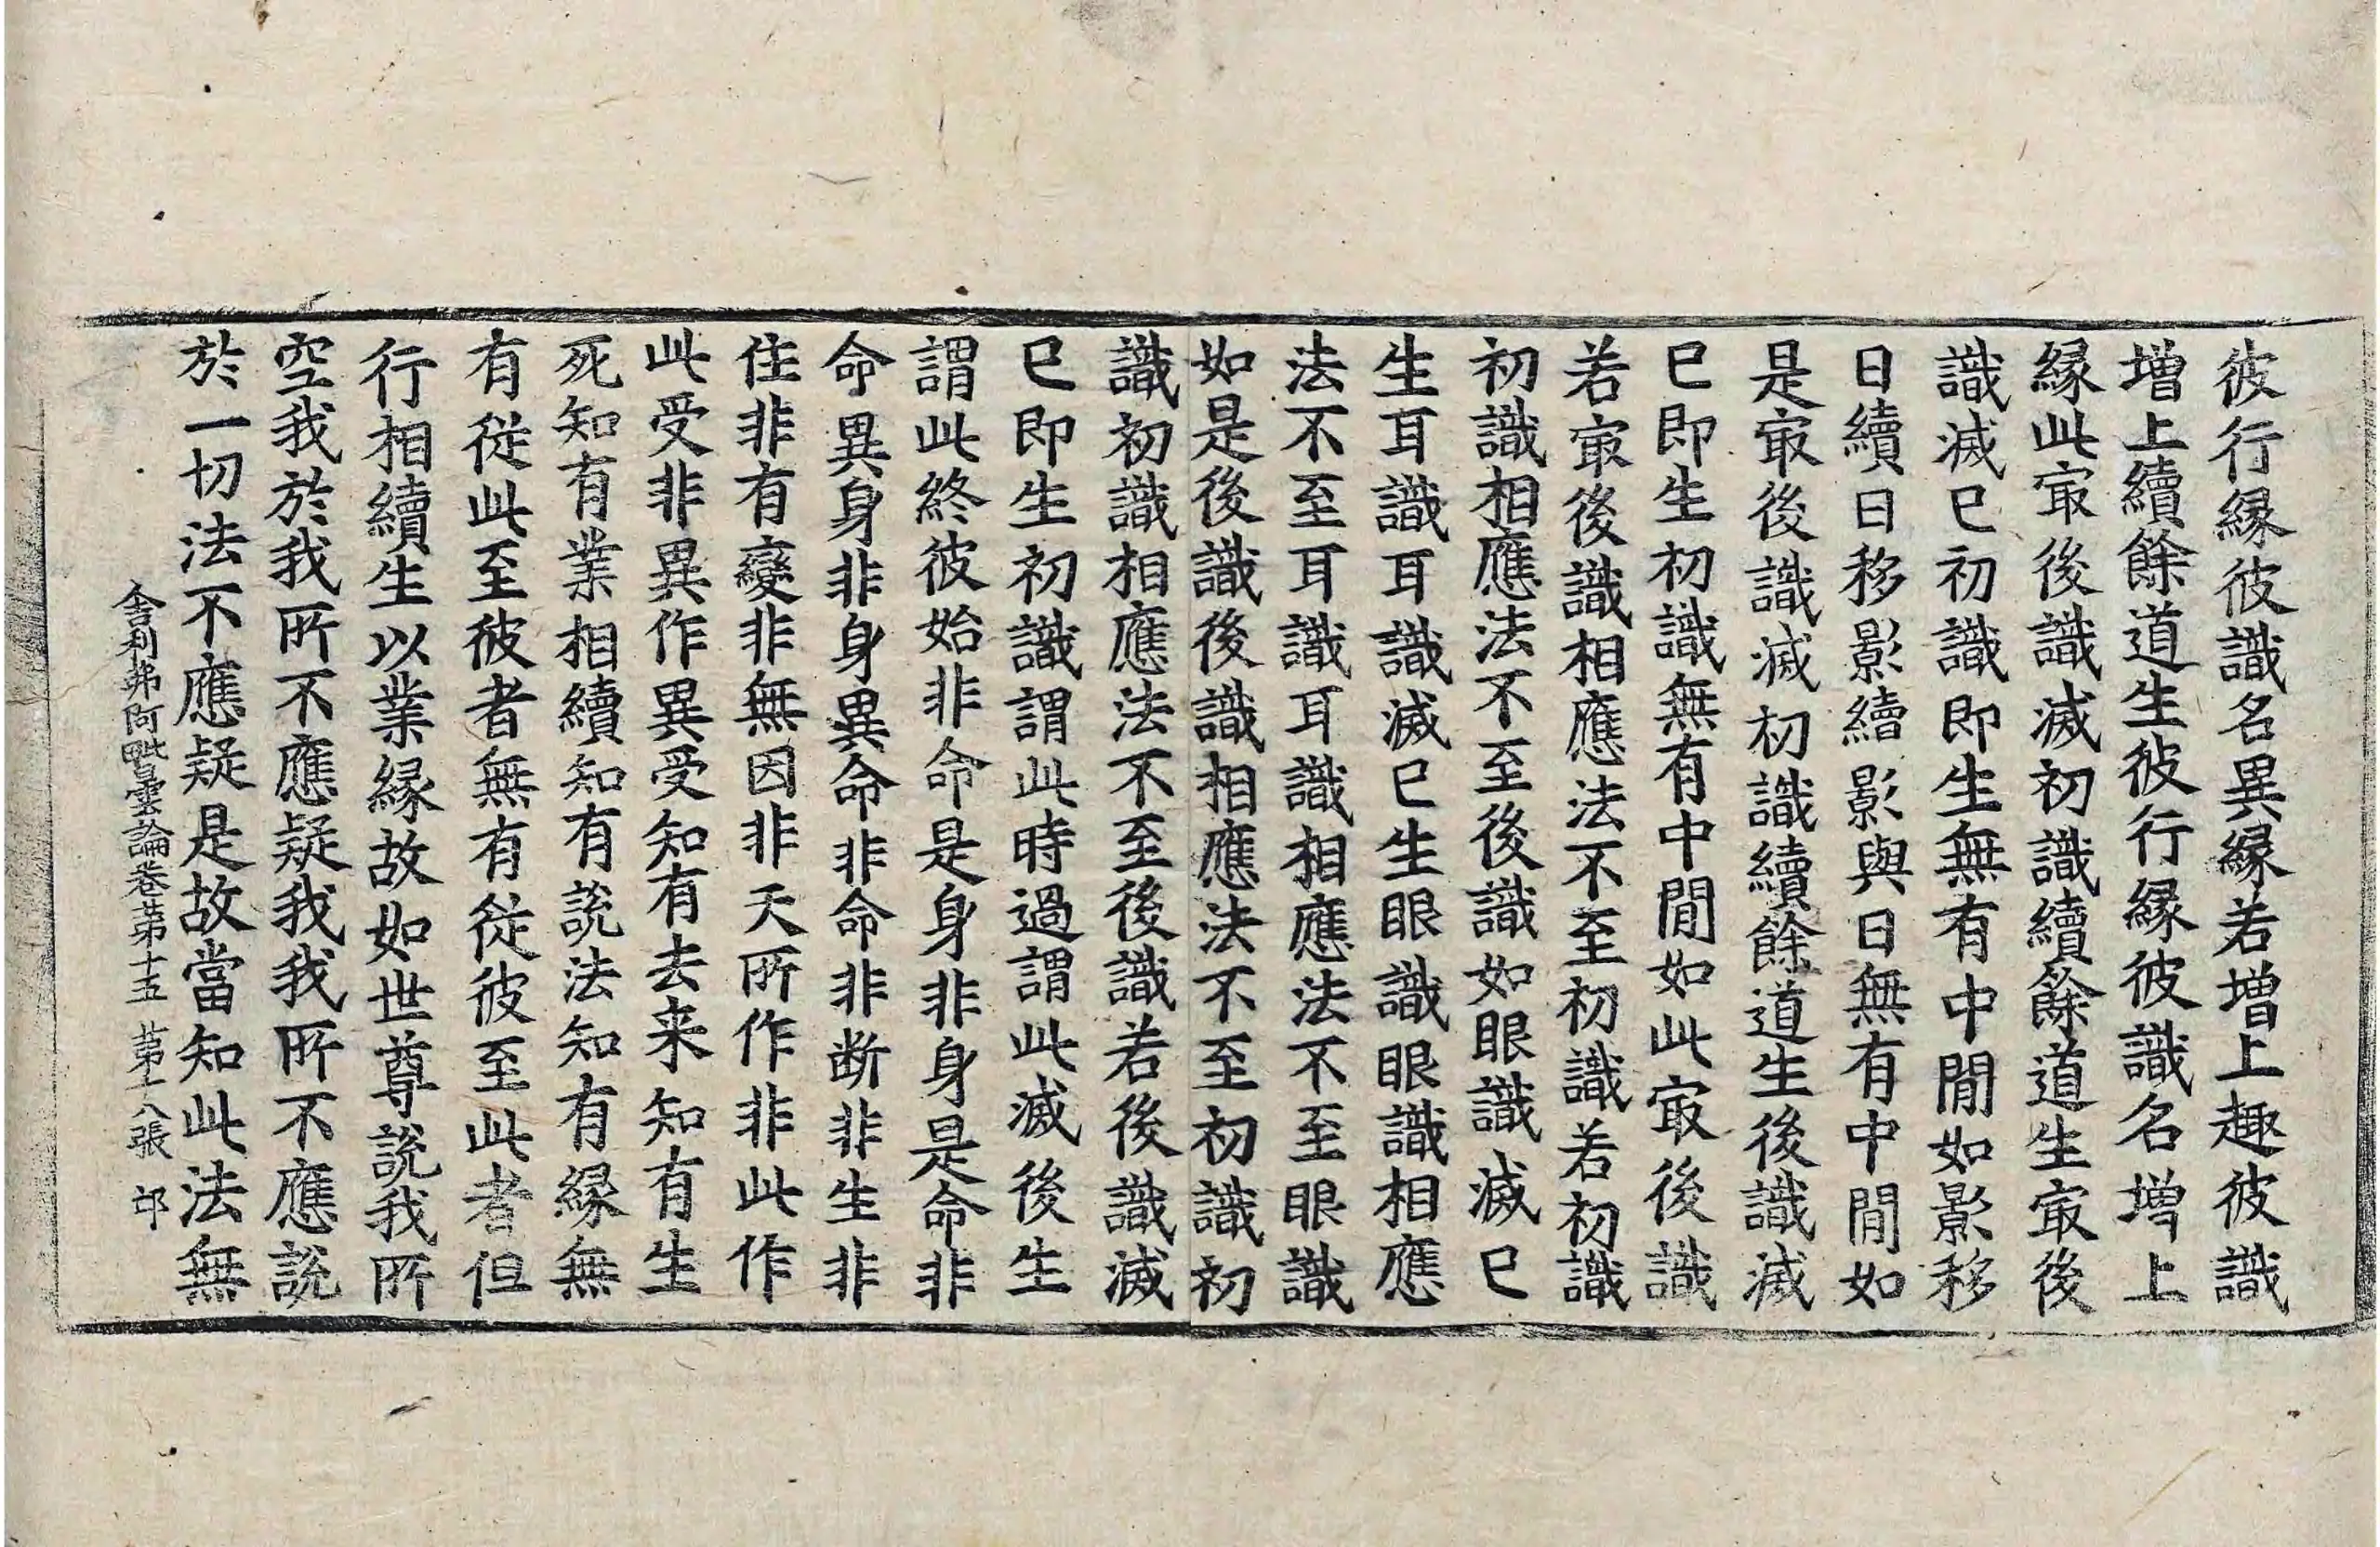 彼行緣彼識名異緣若増上趣彼識
増上續餘道生彼行緣彼識名増上
緣此㝡後識滅初識續餘道生㝡後
識滅已初識即生無有中閒如影移
日續日移影續影與日無有中閒如
是㝡後識滅初識續餘道生後識滅
已即生初識無有中閒如此㝡後識
若㝡後識相應法不至初識若初識
初識相應法不至後識如眼識滅已
生耳識耳識滅已生眼識眼識相應
法不至耳識耳識相應法不至眼識
如是後識後識相應法不至初識初
識初識相應法不至後識若後識滅
已即生初識謂此時過謂此滅後生
謂此終彼始非命是身非身是命非
命異身非身異命非命非断非生非
住非有變非無因非天所作非此作
此受非異作異受知有去来知有生
死知有業相續知有說法知有緣無
有從此至彼者無有從彼至此者但
行相續生以業緣故如世尊說我所
空我於我所不應疑我我所不應說
於一切法不應疑是故當知此法無
舎利弗阿毗曇論卷苐十五 苐十八張 卭